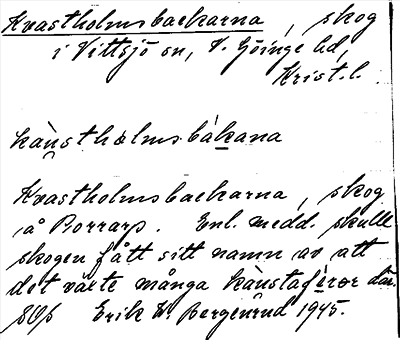 Kvastholmsbackarna, skog
i Vittsjö sn, V. Göinge hd,
Krist. l.
kànsthəlmsbàkana
Kvastholmsbackarna, skog
å Borrarp. Enl. medd. skulle
skogen fått sitt namn av att
det växte många kànstafèror där.
Erik W. Bergenrud 1945.